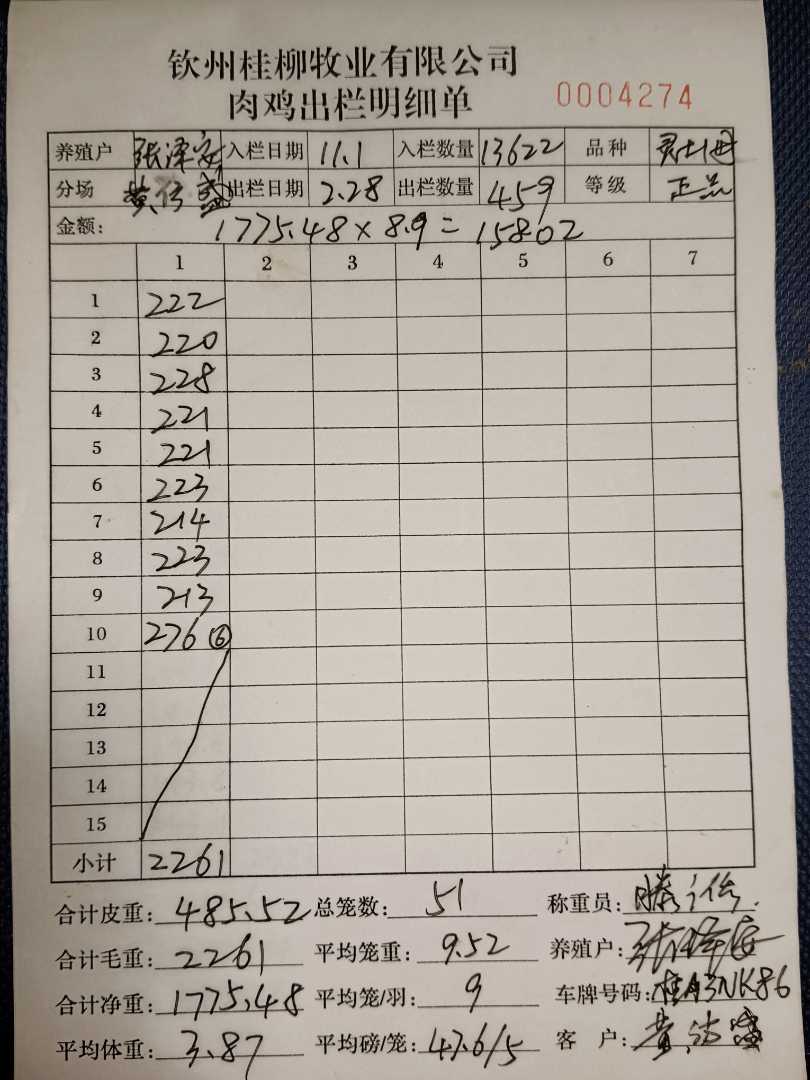 钦州桂柳牧业有限公司
肉鸡出栏明细单 0004274
养殖户 张泽安 入栏日期 11.1 入栏数量 13622 品种
分场 出栏日期 2.28 出栏数量 459 等级 正品
金额: 1775.48×8.9=15802
1 2 3 4 5 6 7
1 222
2 220
3 228
4 221
5 221
6 223
7 214
8 223
9 213
10 276 ⑥
11
12
13
14
15
小计 2261
合计皮重: 485.52 总笼数: 51 称重员:
合计毛重: 2261 平均笼重: 9.52 养殖户: 张泽安
合计净重: 1775.48 平均笼/羽: 9 车牌号码:
平均体重: 3.87 平均磅/笼: 47.6/5 客户: